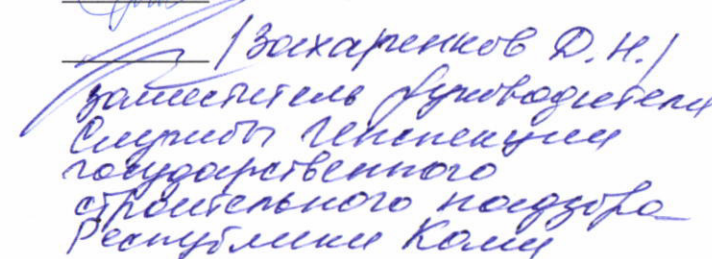 /Захаренков Д.Н./
заместитель руководителя
Службы инспекции
государственного
строительного надзора
Республики Коми